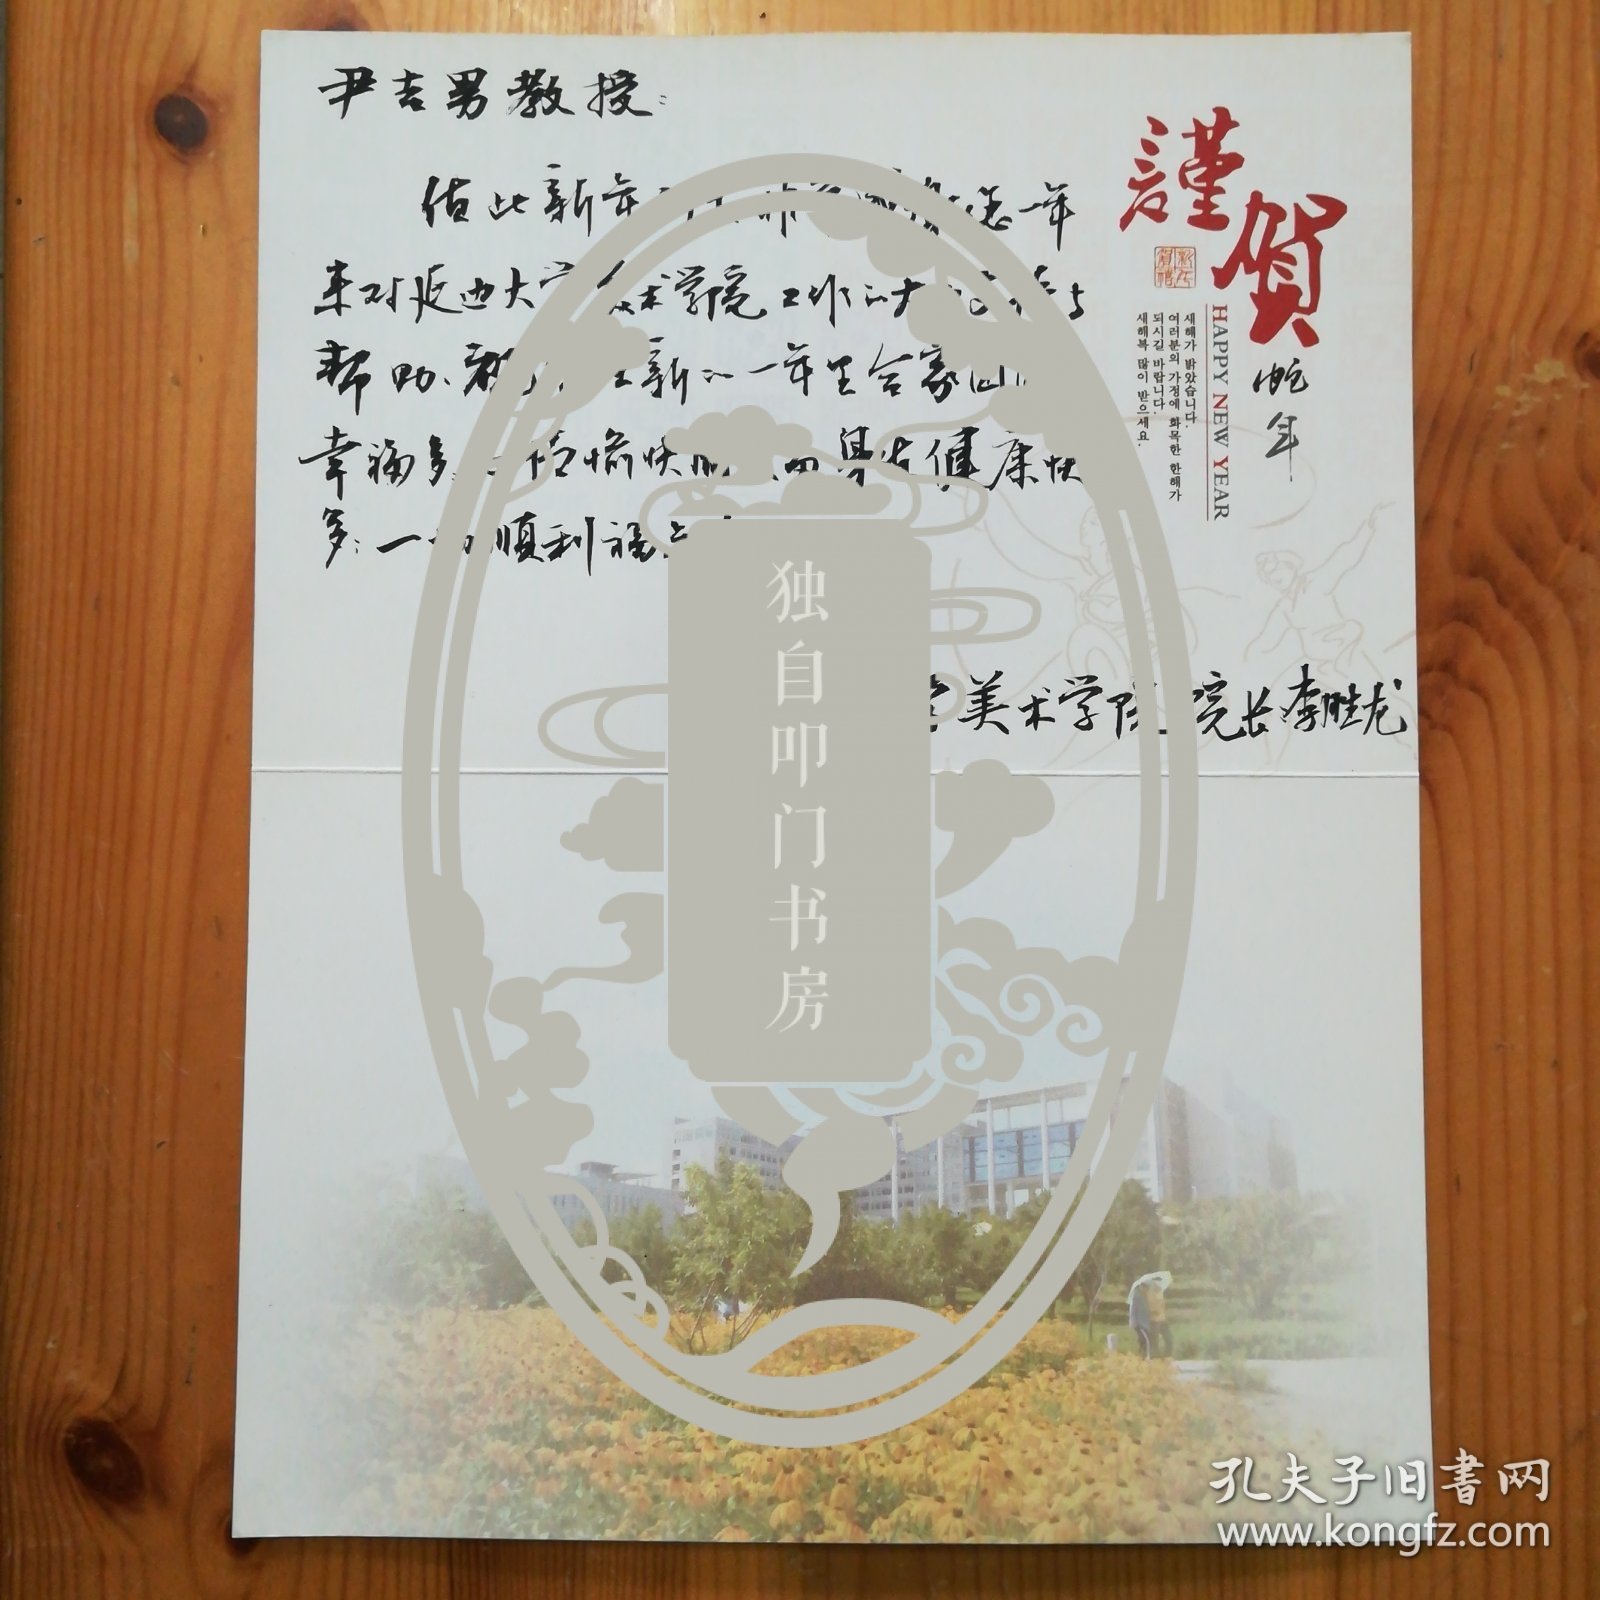 尹吉男教授：
值此新年 一年
来对延边大学美术学院工作的大 与
帮助、祝 新的一年里合家
幸福多 愉快 身体健康快
多；一切顺利福
美术学院 院长李胜龙
謹賀
蛇年
HAPPY NEW YEAR
새해가 밝았습니다.
여러분의 가정에 화목한 한해가
되시길 바랍니다.
새해복 많이 받으세요.
独自叩门书房
孔夫子旧书网
www.kongfz.com